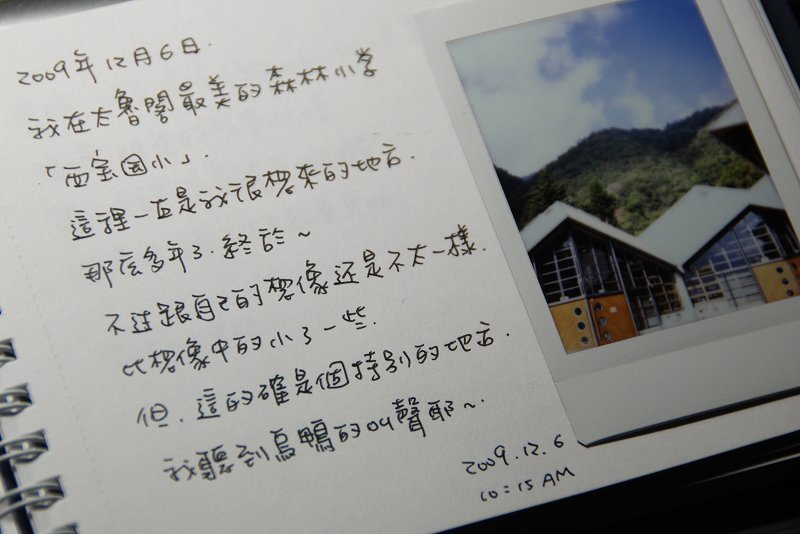 2009年12月6日.
我在太魯閣最美的森林小学
「西宝国小」.
這裡一直是我很想來的地方.
那么多年了.終於~
不过跟自己的想像还是不太一樣.
比想像中的小了一些.
但.這的確是個特别的地方.
我聽到烏鴨的叫聲耶~.
2009.12.6
10:15 AM